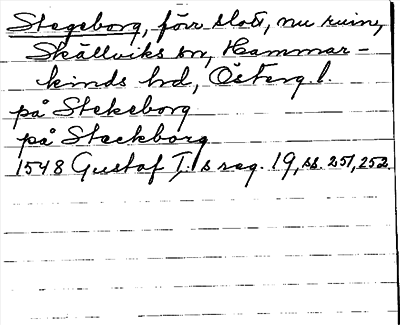 Stegeborg, förr slott, nu ruin,
Skällviks sn, Hammar-
kinds hd, Österg. l.
på Stekeborg
på Steckborg
1548 Gustaf I:s reg. 19, ss. 251, 252.